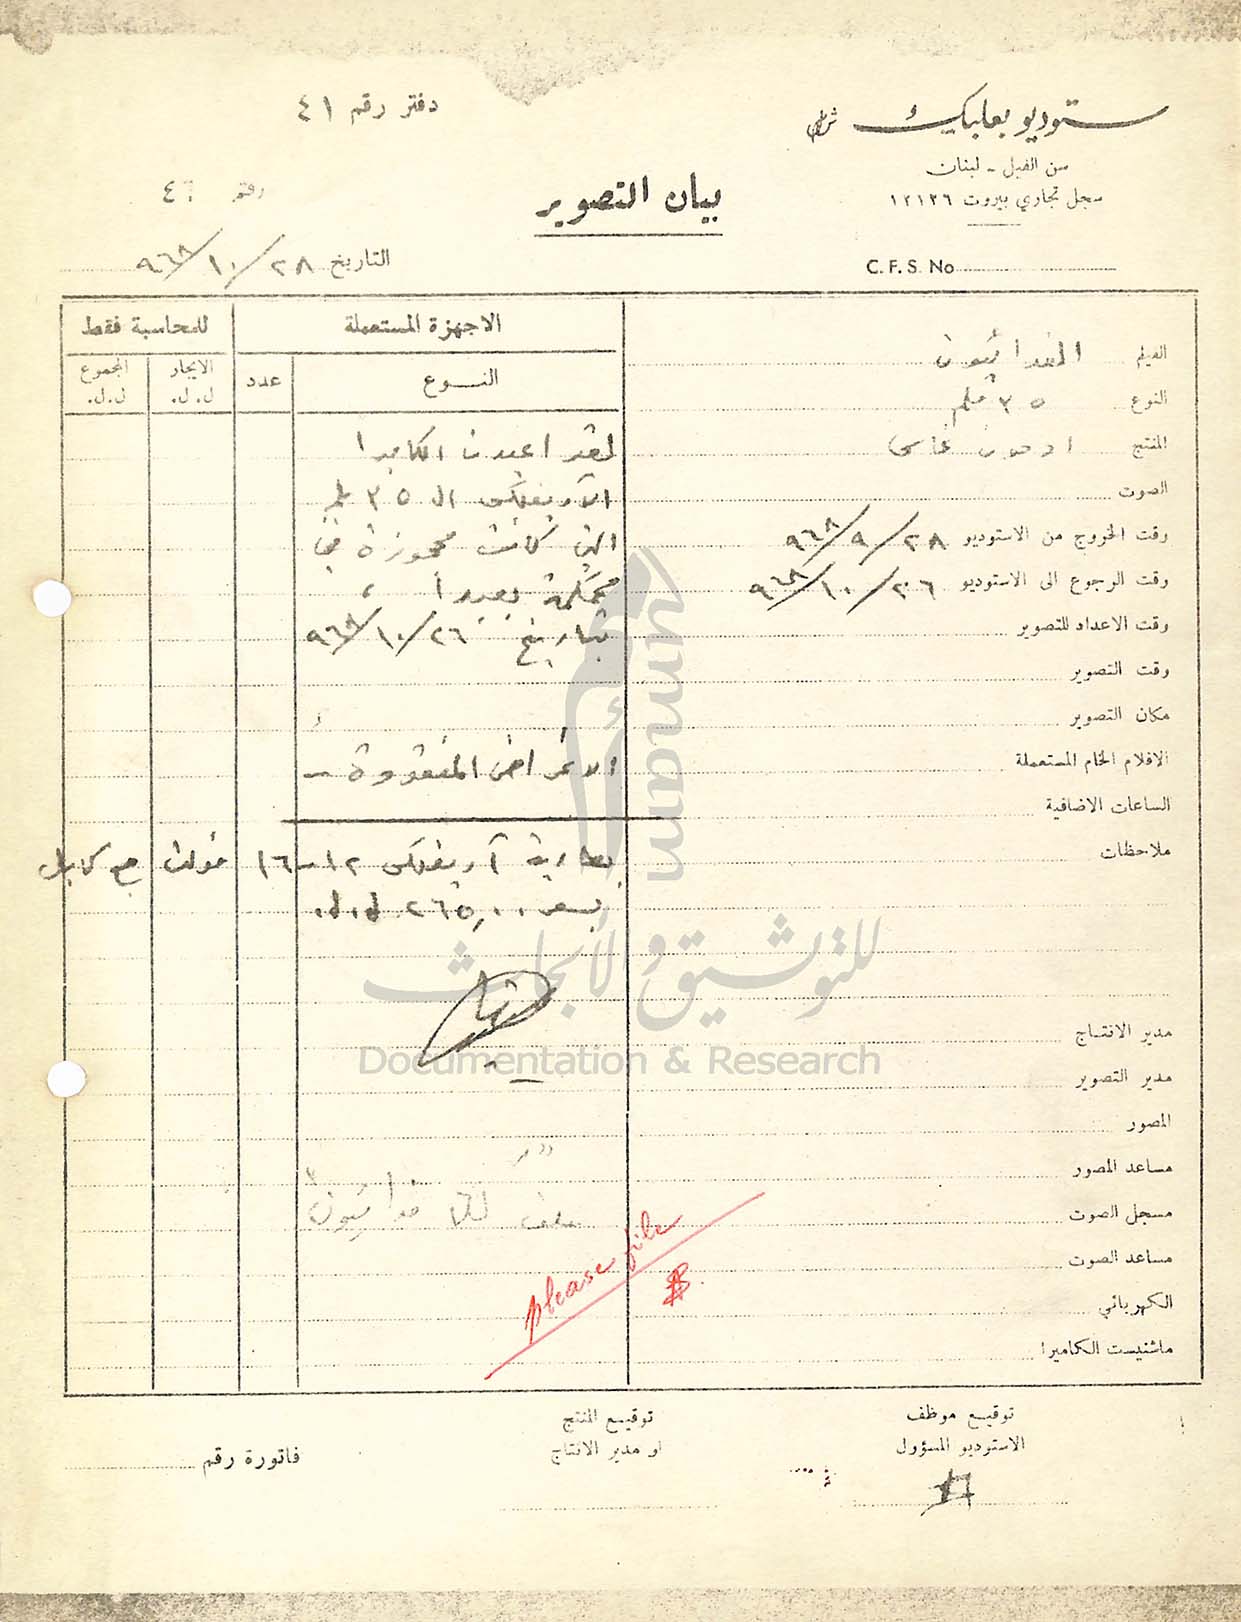 ستوديو بعلبك ش.م.ل
سن الفيل - لبنان
سجل تجاري بيروت ١٢١٢٦
C. F. S. No
دفتر رقم ٤١
رقم ٤٦
بيان التصوير
التاريخ ٢٨/١٠/٩٦٨
الفيلم الفدائيون
النوع ٣٥ ملم
المنتج ادمون نحاس
الصوت
وقت الخروج من الاستوديو ٢٨/٩/٩٦٨
وقت الرجوع الى الاستوديو ٢٦/١٠/٩٦٨
وقت الاعداد للتصوير
وقت التصوير
مكان التصوير
الافلام الخام المستعملة
الساعات الاضافية
ملاحظات
مدير الانتاج
مدير التصوير
المصور
مساعد المصور
مسجل الصوت
مساعد الصوت
الكهربائي
ماشنيست الكاميرا
الاجهزة المستعملة
للمحاسبة فقط
النوع
عدد
الايجار ل.ل.
المجموع ل.ل.
لقد اعيدت الكاميرا
الآريفلكس ال ٣٥ ملم
التي كانت محجوزة في
محكمة بعبدا ،
بتاريخ ٢٦/١٠/٩٦٨
الاغراض المفقودة -
بطارية آريفلكس ١٢-١٦ فولت مع كابل
بسعر ٢٦٥,٠٠ ل.ل.
ملف فدائيون
please file
توقيع موظف
الاستوديو المسؤول
توقيع المنتج
او مدير الانتاج
فاتورة رقم
umam
للتوثيق والأبحاث
Documentation & Research